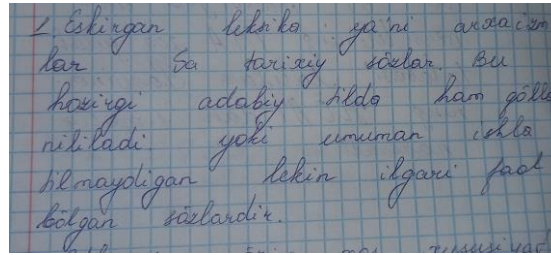 1. Eskirgan leksika ya'ni arxaizm
lar va tarixiy sözlar. Bu
hozirgi adabiy tilda ham göllа
nililadi yoki umuman ishla
tilmaydigan lekin ilgari faol
bölgan sözlardir.